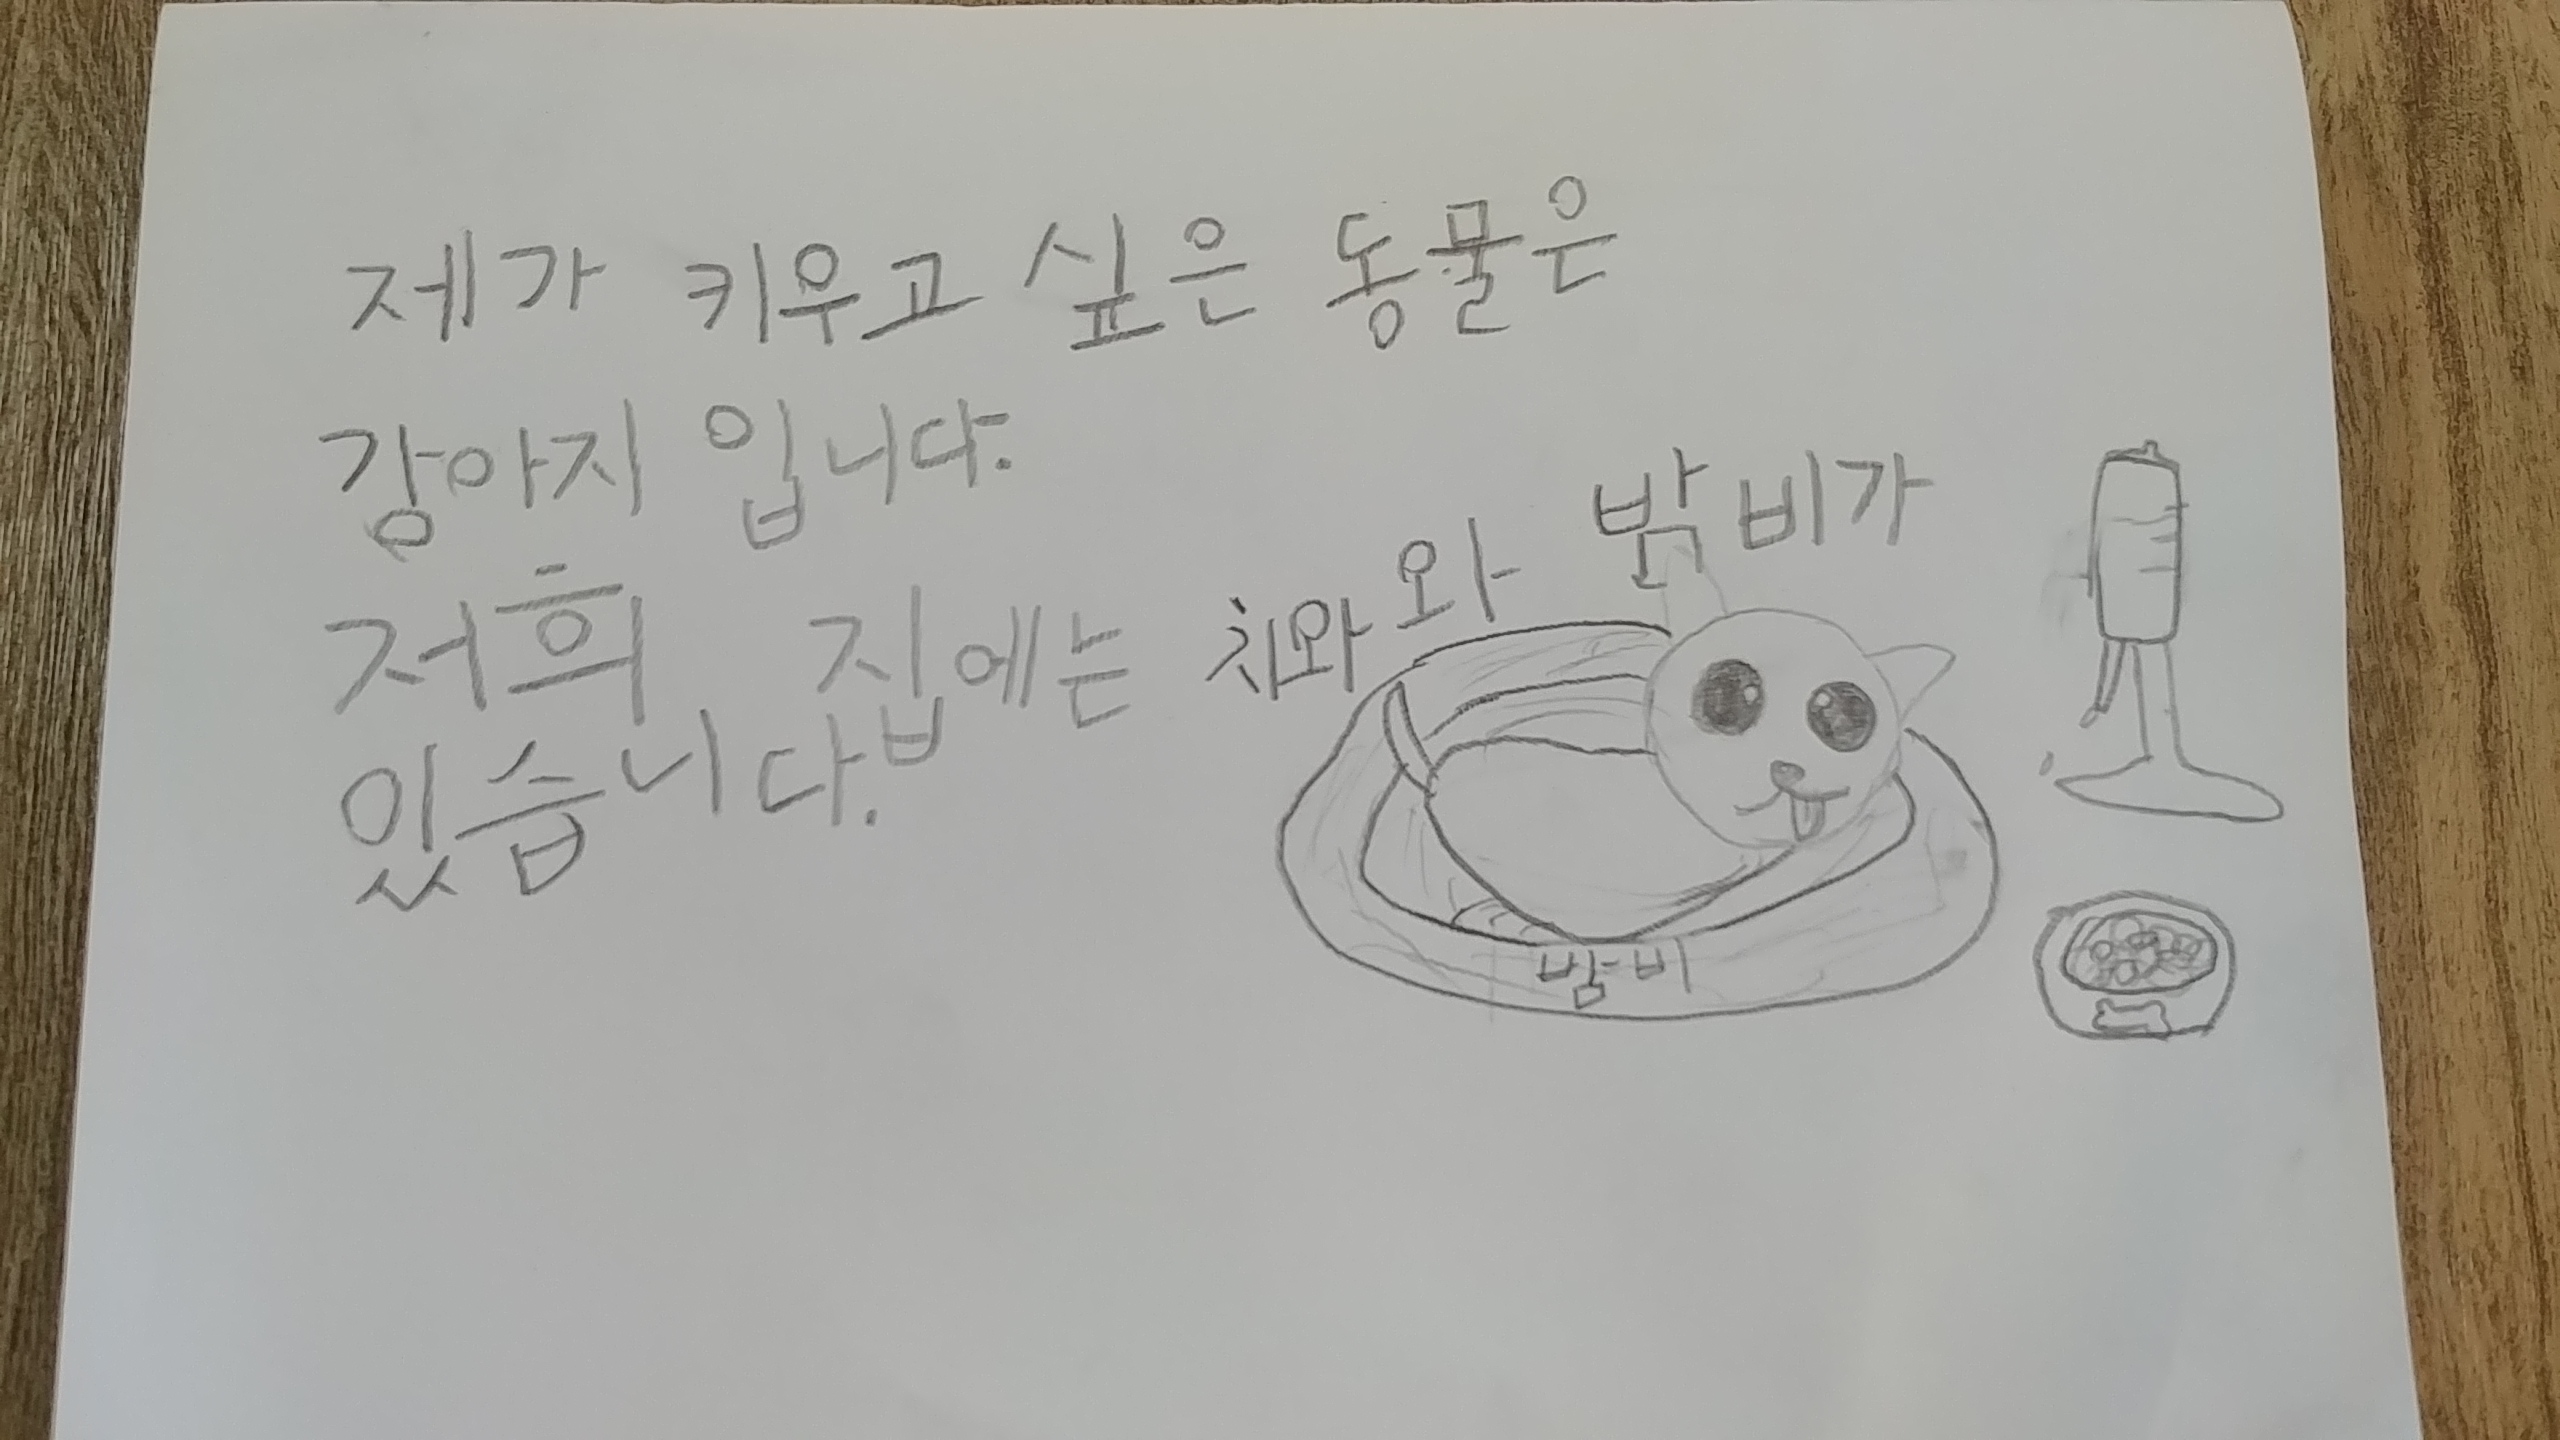 제가 키우고 싶은 동물은
강아지 입니다.
저희 집에는 치와와 밤비가
있습니다.
밤비